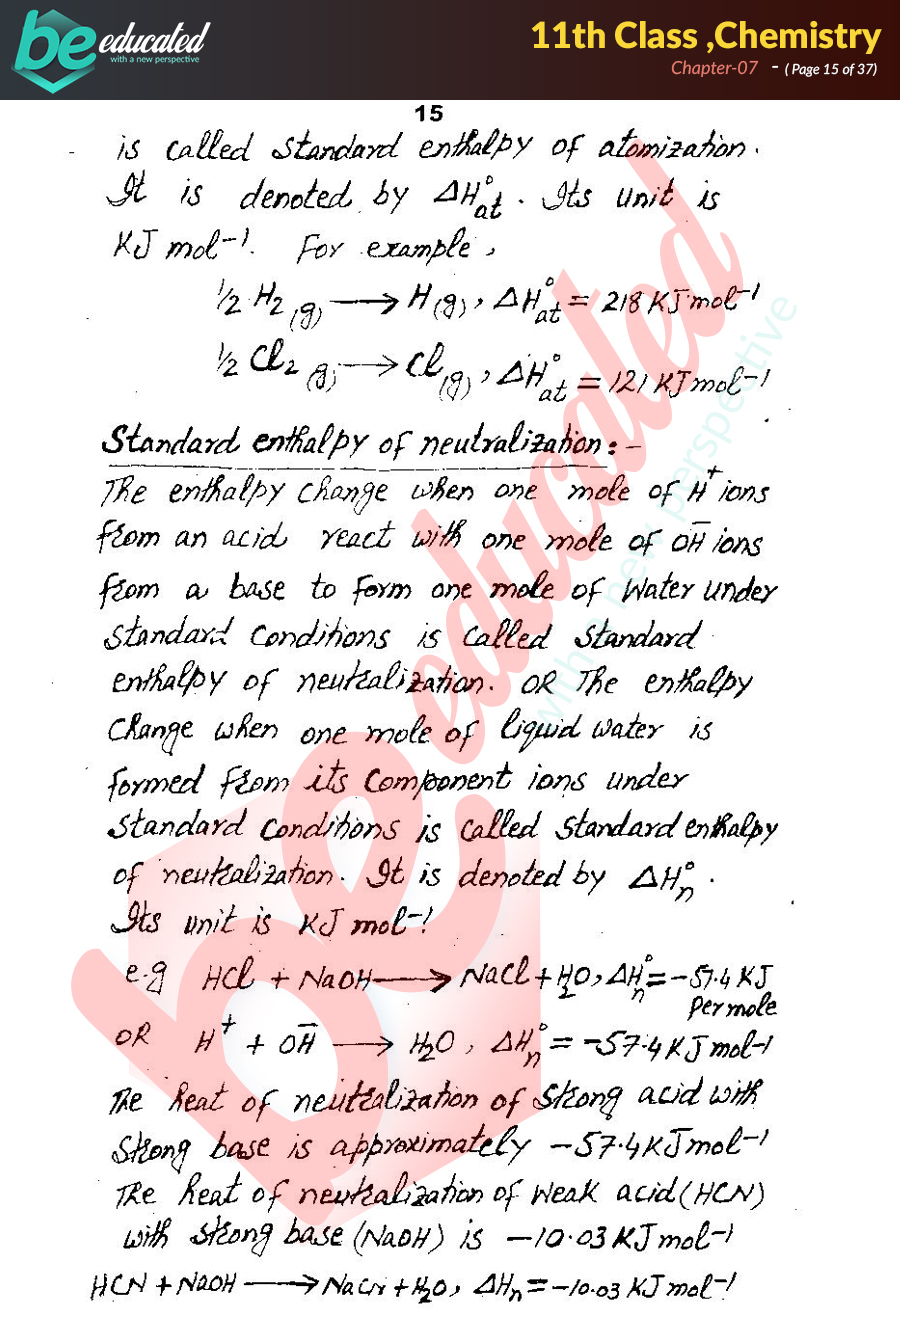 be educated
with a new perspective
11th Class ,Chemistry
Chapter-07 - ( Page 15 of 37)
15
is called standard enthalpy of atomization.
It is denoted by ΔH°at. Its unit is
KJ mol⁻¹. For example,
1/2 H₂(g) ⟶ H(g), ΔH°at = 218 KJ mol⁻¹
1/2 Cl₂(g) ⟶ Cl(g), ΔH°at = 121 KJ mol⁻¹
Standard enthalpy of neutralization:-
The enthalpy change when one mole of H⁺ ions
from an acid react with one mole of OH⁻ ions
from a base to form one mole of Water under
standard conditions is called standard
enthalpy of neutralization. OR The enthalpy
Change when one mole of liquid water is
formed from its component ions under
standard conditions is called standard enthalpy
of neutralization. It is denoted by ΔH°n.
Its unit is KJ mol⁻¹
e.g HCl + NaOH ⟶ NaCl + H₂O, ΔH°n = -57.4 KJ
Per mole
OR H⁺ + OH⁻ ⟶ H₂O, ΔH°n = -57.4 KJ mol⁻¹
The heat of neutralization of strong acid with
strong base is approximately -57.4 KJ mol⁻¹
The heat of neutralization of weak acid (HCN)
with strong base (NaOH) is -10.03 KJ mol⁻¹
HCN + NaOH ⟶ NaCN + H₂O, ΔHn = -10.03 KJ mol⁻¹
be educated
with a new perspective